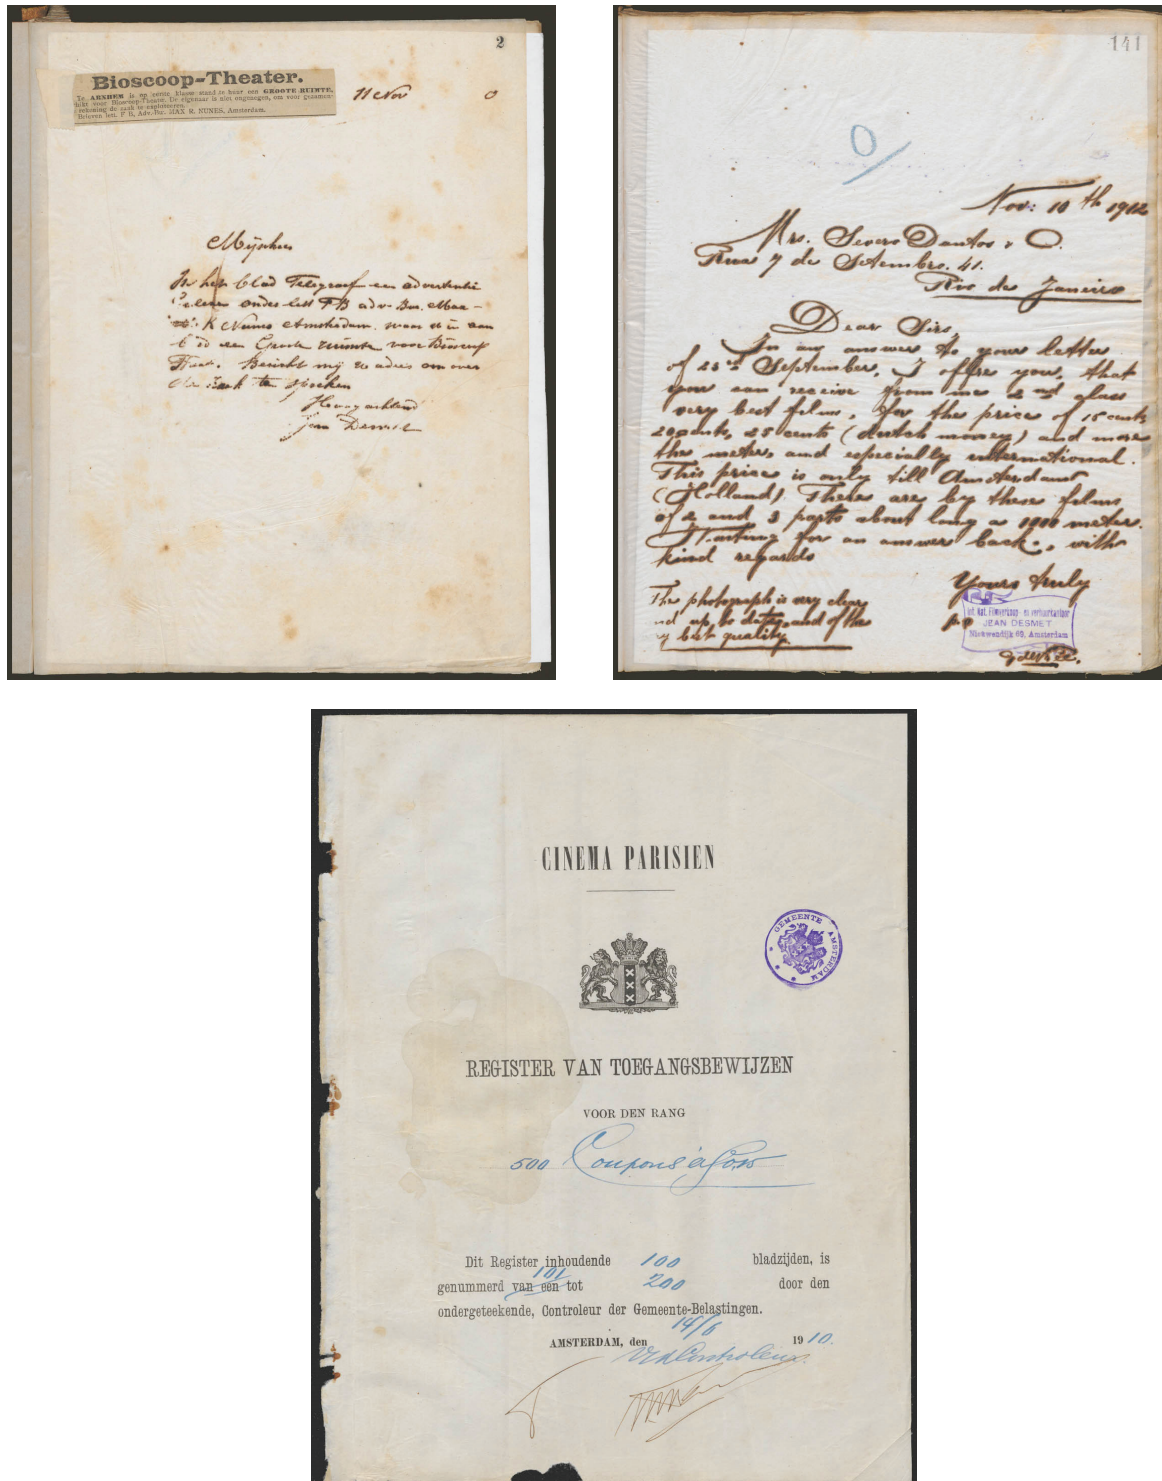 2
Bioscoop-Theater.
Te ARNHEM is op eerste klasse stand te huur een GROOTE RUIMTE,
rekening de zaak te exploiteeren.
Brieven lett. F B, Adv.-Bur. MAX R. NUNES, Amsterdam.
11 Nov 0
Mijnheer
In het blad Telegraaf een advertentie
onder lett FB adv. Bur. Max
R Nunes Amsterdam waar u in aan
een Groote ruimte voor Bioscoop
Bericht mij uw adres om over
de zaak te spreken
Hoogachtend
Jean Desmet
141
0
Nov: 10th 1912
Mrs. Severo Dantos & Co.
Rua 7 de Setembro. 41.
Rio de Janeiro
Dear Sirs,
In any answer to your letter
of 23rd September, I offre you, that
you can receive from me 2nd class
very best films, for the price of 15 cents,
20 cents, 25 cents (dutch money) and more
the meter, and especially international.
This price is only till Amsterdam
(Holland). There are by these films
of 2 and 3 parts about long a 1000 meter.
Waiting for an answer back, with
kind regards
Yours truly
The photograph is very clear
and up to date, and of the
best quality.
p.o
Int. Nat. Filmverkoop- en verhuurkantoor
JEAN DESMET
Nieuwendijk 69, Amsterdam
CINEMA PARISIEN
GEMEENTE AMSTERDAM
REGISTER VAN TOEGANGSBEWIJZEN
VOOR DEN RANG
500 Coupons à
Dit Register inhoudende 100 bladzijden, is
101
genummerd van een tot 200 door den
ondergeteekende, Controleur der Gemeente-Belastingen.
AMSTERDAM, den 14/6 1910.